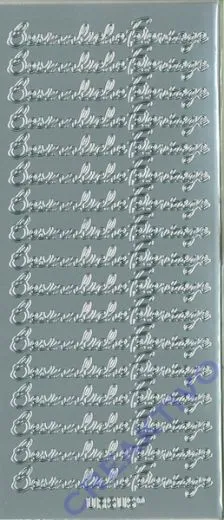 Besinnliche Feiertage
Besinnliche Feiertage
Besinnliche Feiertage
Besinnliche Feiertage
Besinnliche Feiertage
Besinnliche Feiertage
Besinnliche Feiertage
Besinnliche Feiertage
Besinnliche Feiertage
Besinnliche Feiertage
Besinnliche Feiertage
Besinnliche Feiertage
Besinnliche Feiertage
Besinnliche Feiertage
Besinnliche Feiertage
Besinnliche Feiertage
Besinnliche Feiertage
CREAKTIVO